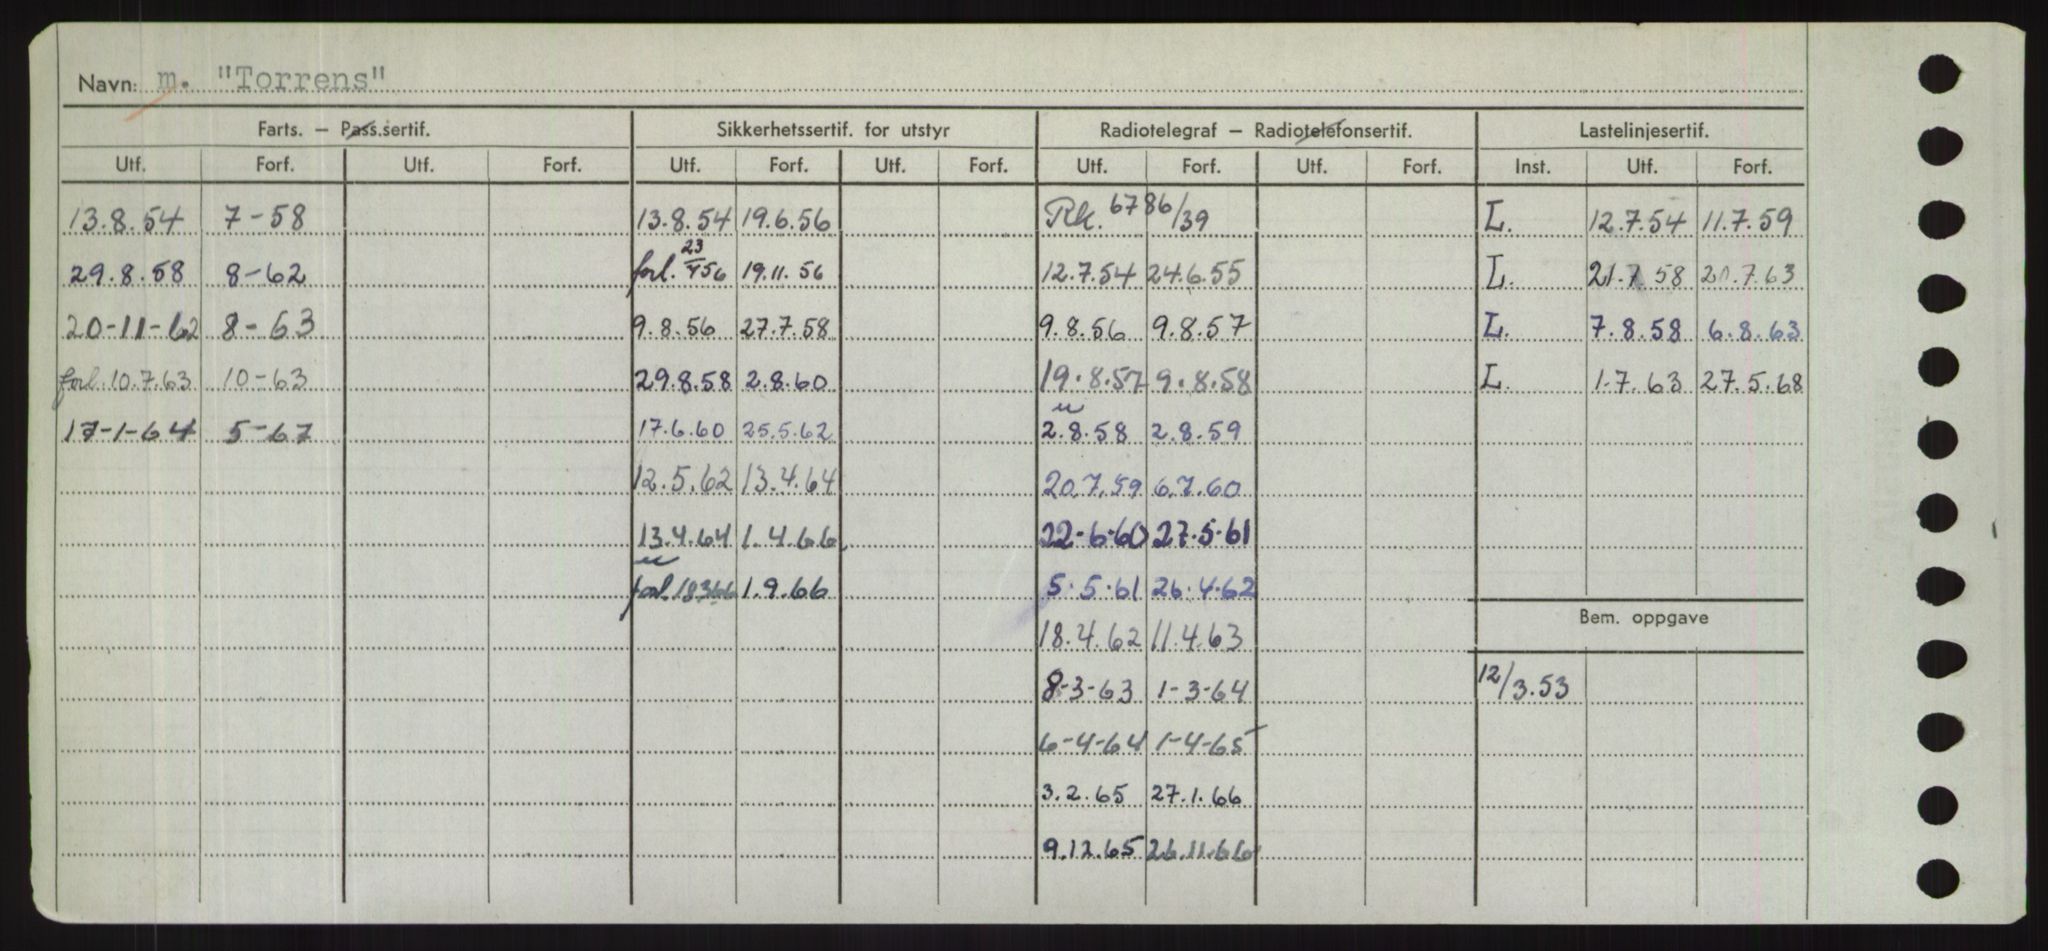 Navn: m. "Torrens"
Farts. – Pass.sertif. Sikkerhetssertif. for utstyr Radiotelegraf – Radiotelefonsertif. Lastelinjesertif.
Utf. Forf. Utf. Forf. Utf. Forf. Utf. Forf. Utf. Forf. Utf. Forf. Inst. Utf. Forf.
13.8.54 7-58 13.8.54 19.6.56 Rk. 6786/39 L. 12.7.54 11.7.59
29.8.58 8-62 forl. 19.11.56 12.7.54 24.6.55 L. 21.7.58 20.7.63
20-11-62 8-63 9.8.56 27.7.58 9.8.56 9.8.57 L. 7.8.58 6.8.63
forl. 10.7.63 10-63 29.8.58 2.8.60 19.8.57 9.8.58 L. 1.7.63 27.5.68
17-1-64 5-67 17.6.60 25.5.62 2.8.58 2.8.59
12.5.62 13.4.64 20.7.59 6.7.60
13.4.64 1.4.66 22-6-60 27.5.61
forl. 18366 1.9.66 5.5.61 26.4.62
Bem. oppgave
18.4.62 11.4.63
8-3-63 1-3-64 12/3.53
6-4-64 1-4-65
3.2.65 27.1.66
9.12.65 26.11.66